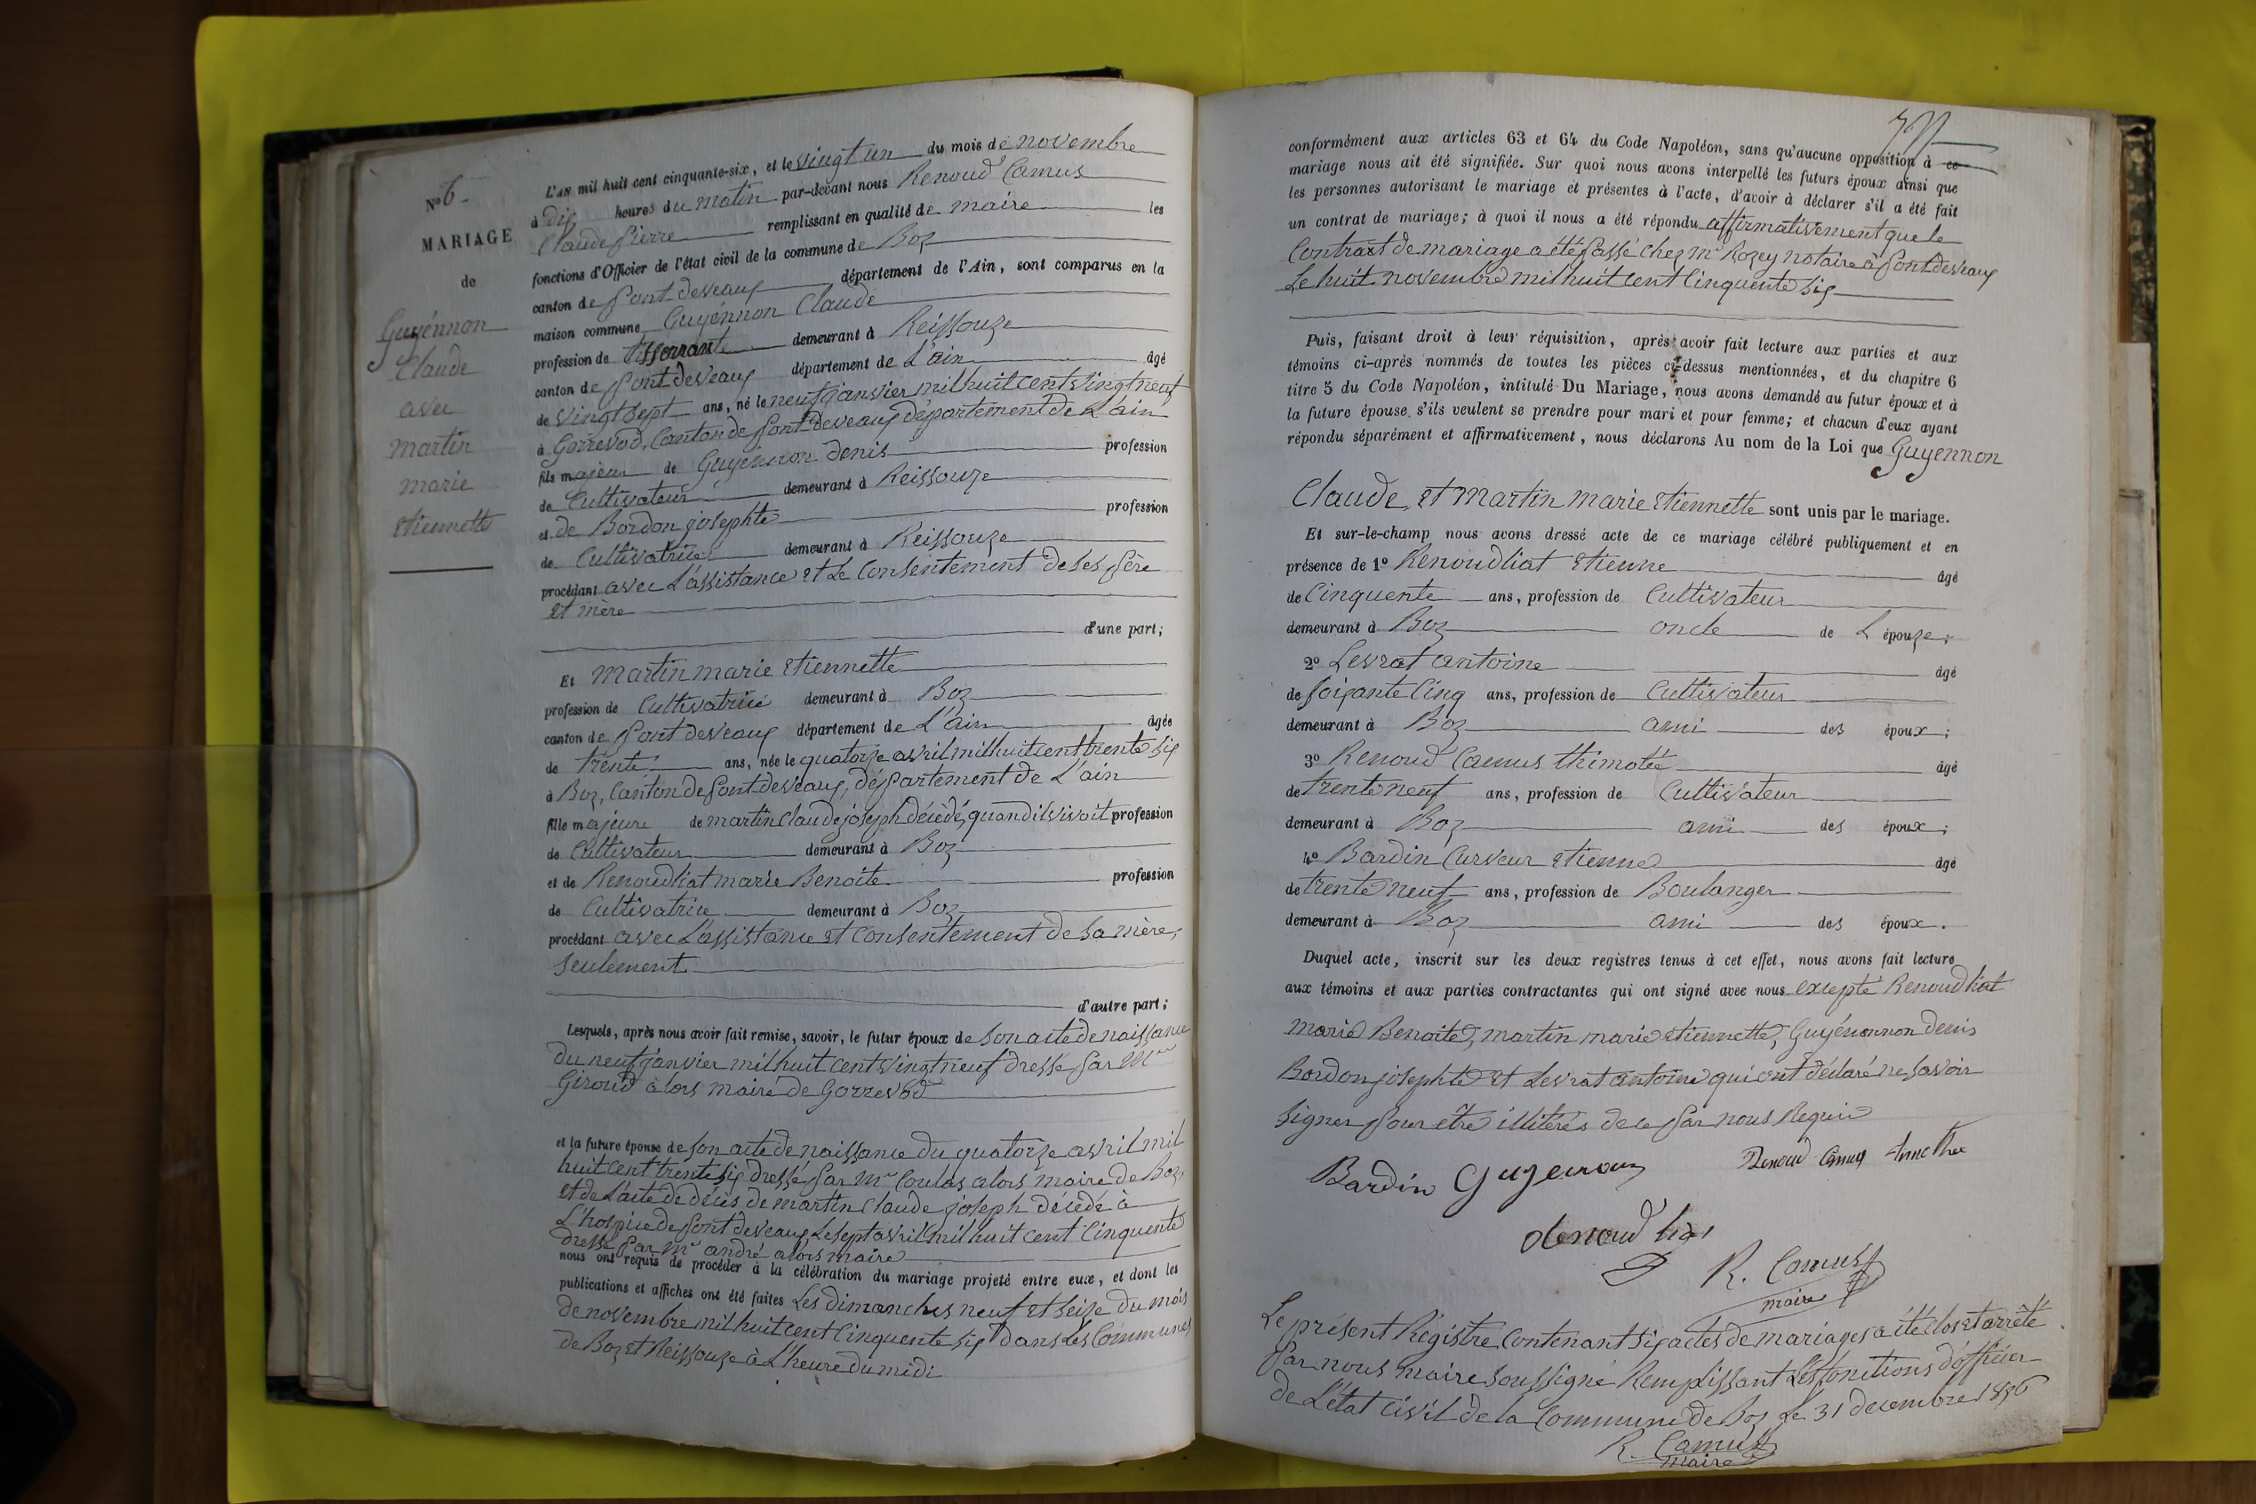 N° 6
MARIAGE
de
Guyénnon
Claude
avec
martin
marie
etiennette
L'AN mil huit cent cinquante-six, et le vingt un du mois de novembre
à dix heures du matin par-devant nous Renoud Camus
Claude Pierre remplissant en qualité de maire les
fonctions d'Officier de l'état civil de la commune de Boz
canton de Pont deveaux département de l'Ain, sont comparus en la
maison commune Guyénnon Claude
profession de tisserrant demeurant à Reissouze
canton de Pont deveaux département de L'ain âgé
de vingt sept ans, né le neuf janvier mil huit cent vingt neuf
à Gorrevod, Canton de Pont deveaux département de L'ain
fils majeur de Guyennon denis profession
de Cultivateur demeurant à Reissouze
et de Bordon josephte profession
de Cultivatrice demeurant à Reissouze
procédant avec L'assistance et Le Consentement de ses Père
et mère
d'une part;
Et martin marie etiennette
profession de Cultivatrice demeurant à Boz
canton de Pont deveaux département de L'ain âgée
de trente ans, née le quatorze avril mil huit cent trente six
à Boz, Canton de Pont deveaux, département de L'ain
fille majeure de martin Claude joseph décédé, quand il vivoit profession
de Cultivateur demeurant à Boz
et de Renoud liat marie Benoite profession
de Cultivatrice demeurant à Boz
procédant avec L'assistance et Consentement de sa mère,
seulement
d'autre part;
Lesquels, après nous avoir fait remise, savoir, le futur époux de son acte de naissance
du neuf janvier mil huit cent vingt neuf dressé par Mr
Giroud alors maire de Gorrevod
et la future épouse de son acte de naissance du quatorze avril mil
huit cent trente six dressé par Mr Coulas alors maire de Boz,
et de L'acte de décès de martin Claude joseph décédé à
L'hospice de Pont deveaux Le sept avril mil huit cent Cinquente
dressé par Mr andré alors maire
nous ont requis de procéder à la célébration du mariage projeté entre eux, et dont les
publications et affiches ont été faites Les dimanches neuf et seize du mois
de novembre mil huit cent Cinquente six dans Les Communes
de Boz et Reissouze à L'heure du midi
conformément aux articles 63 et 64 du Code Napoléon, sans qu'aucune opposition à ce
mariage nous ait été signifiée. Sur quoi nous avons interpellé les futurs époux ainsi que
les personnes autorisant le mariage et présentes à l'acte, d'avoir à déclarer s'il a été fait
un contrat de mariage; à quoi il nous a été répondu affirmativement que le
Contrast de mariage a été passé chez Mr Rozey notaire à Pont deveaux
Le huit novembre mil huit cent Cinquente six
Puis, faisant droit à leur réquisition, après avoir fait lecture aux parties et aux
témoins ci-après nommés de toutes les pièces ci-dessus mentionnées, et du chapitre 6
titre 5 du Code Napoléon, intitulé Du Mariage, nous avons demandé au futur époux et à
la future épouse s'ils veulent se prendre pour mari et pour femme; et chacun d'eux ayant
répondu séparément et affirmativement, nous déclarons Au nom de la Loi que Guyennon
Claude, et Martin marie etiennette sont unis par le mariage.
Et sur-le-champ nous avons dressé acte de ce mariage célébré publiquement et en
présence de 1° Renoud liat etienne âgé
de Cinquente ans, profession de Cultivateur
demeurant à Boz oncle de L épouze;
2° Levrat antoine âgé
de soixante Cinq ans, profession de Cultivateur
demeurant à Boz ami des époux;
3° Renoud Camus thimotée âgé
de trente neuf ans, profession de Cultivateur
demeurant à Boz ami des époux;
4° Bardin Curveur etienne âgé
de trente neuf ans, profession de Boulanger
demeurant à Boz ami des époux.
Duquel acte, inscrit sur les deux registres tenus à cet effet, nous avons fait lecture
aux témoins et aux parties contractantes qui ont signé avec nous excepté Renoud liat
marie Benoite, martin marie etiennette, Guyénonnon denis
Bordon josephte et Levrat antoine qui ont déclaré ne savoir
signer pour être illitérés de ce par nous Requis
Bardin Guyennon Renoud Camus
Renoud liat
R. Camus
maire
Le présent Régistre Contenant six actes de mariages a été clos et arrêté
par nous maire soussigné Remplissant Les fonctions d'officier
de L'état civil de la Commune de Boz Le 31 decembre 1856
R. Camus
maire